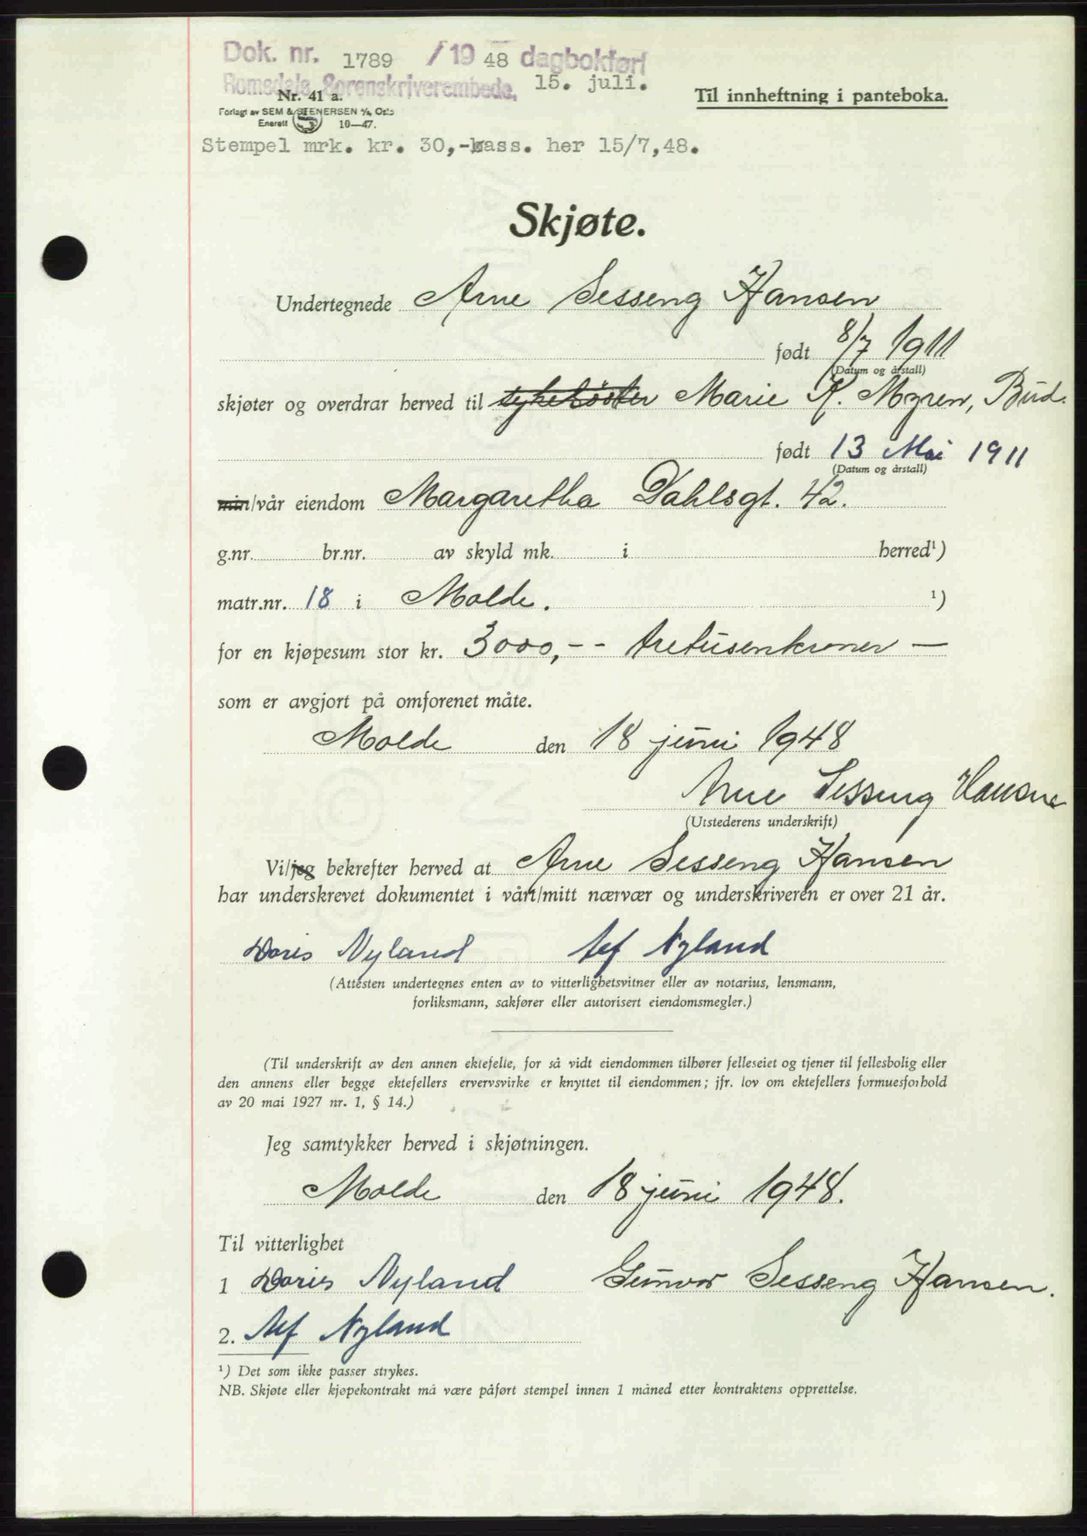 Dok. nr. 1789 /19 48 dagbokført
Romsdals Sorenskriverembede, 15. juli.
Nr. 41 a.
Til innheftning i panteboka.
Forlagt av SEM & STENERSEN A/S, Oslo
Enerett 10—47.
Stempel mrk. kr. 30,-kass. her 15/7,48.
Skjøte.
Undertegnede Arne Sesseng Hansen
født 8/7 1911
(Datum og årstall)
skjøter og overdrar herved til Marie K. Myren, Bud.
født 13 Mai 1911
(Datum og årstall)
min/vår eiendom Margaretha Dahlsgt. 42.
g.nr. br.nr. av skyld mk. i herred¹)
matr.nr. 18 i Molde. ¹)
for en kjøpesum stor kr. 3000,-- tretusenkroner —
som er avgjort på omforenet måte.
Molde den 18 juni 1948
Arne Sesseng Hansen
(Utstederens underskrift)
Vi/jeg bekrefter herved at Arne Sesseng Hansen
har underskrevet dokumentet i vårt/mitt nærvær og underskriveren er over 21 år.
Doris Nyland Alf Nyland
(Attesten undertegnes enten av to vitterlighetsvitner eller av notarius, lensmann,
forliksmann, sakfører eller autorisert eiendomsmegler.)
(Til underskrift av den annen ektefelle, for så vidt eiendommen tilhører felleseiet og tjener til fellesbolig eller
den annens eller begge ektefellers ervervsvirke er knyttet til eiendommen; jfr. lov om ektefellers formuesforhold
av 20 mai 1927 nr. 1, § 14.)
Jeg samtykker herved i skjøtningen.
Molde den 18 juni 1948.
Til vitterlighet
1 Doris Nyland Gunvor Sesseng Hansen.
2. Alf Nyland
¹) Det som ikke passer strykes.
NB. Skjøte eller kjøpekontrakt må være påført stempel innen 1 måned etter kontraktens opprettelse.